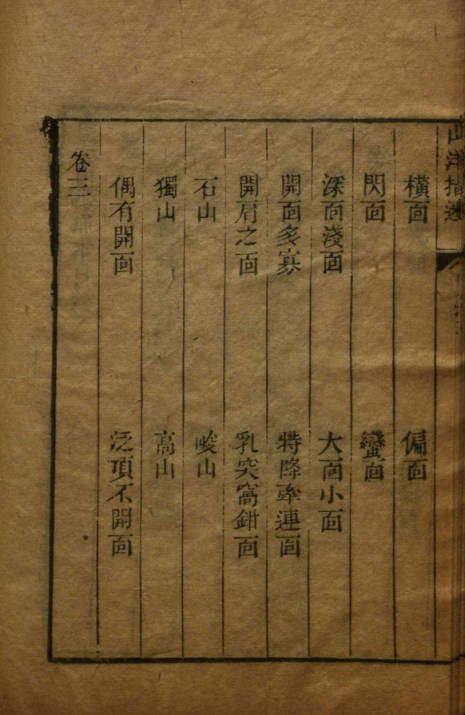 山洋指迷
橫面　偏面
閃面　蠻面
深面淺面　大面小面
開面多寡　特降牽連面
開肩之面　乳突窩鉗面
石山　峻山
獨山　高山
偶有開面　泛頂不開面
卷三